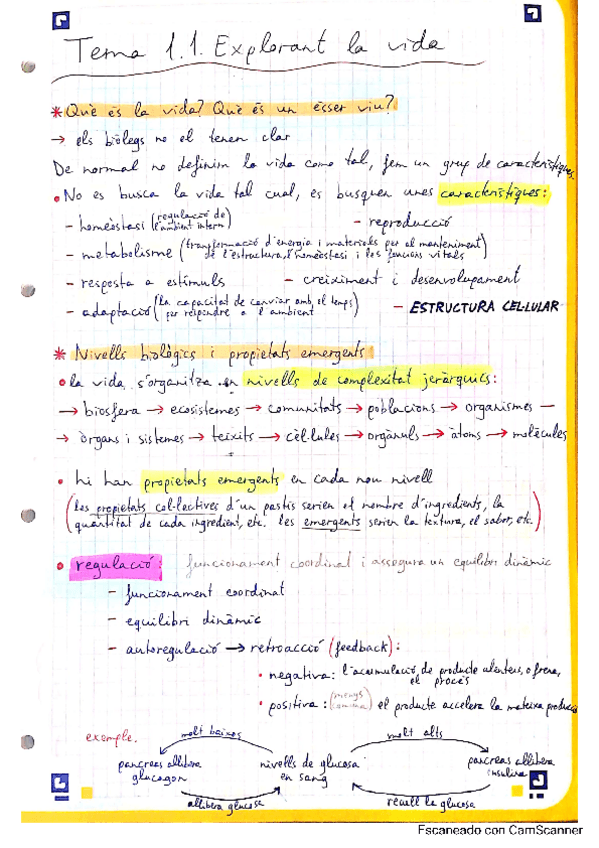 Tema 1.1. Explorant la vida
* Què és la vida? Què és un ésser viu?
→ els biòlegs no el tenen clar
De normal no definim la vida com a tal, fem un grup de característiques.
• No es busca la vida tal cual, es busquen unes característiques:
- homeòstasi (regulació de l'ambient intern)
- reproducció
- metabolisme (transformació d'energia i materials per al manteniment de l'estructura, l'homeòstasi i les funcions vitals)
- resposta a estímuls
- creiximent i desenvolupament
- adaptació (la capacitat de canviar amb el temps per respondre a l'ambient)
- ESTRUCTURA CEL·LULAR
* Nivells biològics i propietats emergents
• la vida s'organitza en nivells de complexitat jeràrquics:
→ biosfera → ecosistemes → comunitats → poblacions → organismes —
→ òrgans i sistemes → teixits → cèl·lules → orgànuls → àtoms → molècules
• hi han propietats emergents en cada nou nivell
(les propietats col·lectives d'un pastís serien el nombre d'ingredients, la
quantitat de cada ingredient, etc. les emergents serien la textura, el sabor, etc.)
• regulació: funcionament coordinat i assegura un equilibri dinàmic
- funcionament coordinat
- equilibri dinàmic
- autoregulació → retroacció (feedback):
• negativa: l'acumulació de producte alenteix, o frena, el procés
• positiva: (menys comuna) el producte accelera la mateixa producció
exemple.
molt baixos
molt alts
pancreas allibera glucagon
nivells de glucosa en sang
pancreas allibera insulina
allibera glucosa
recull la glucosa
Escaneado con CamScanner